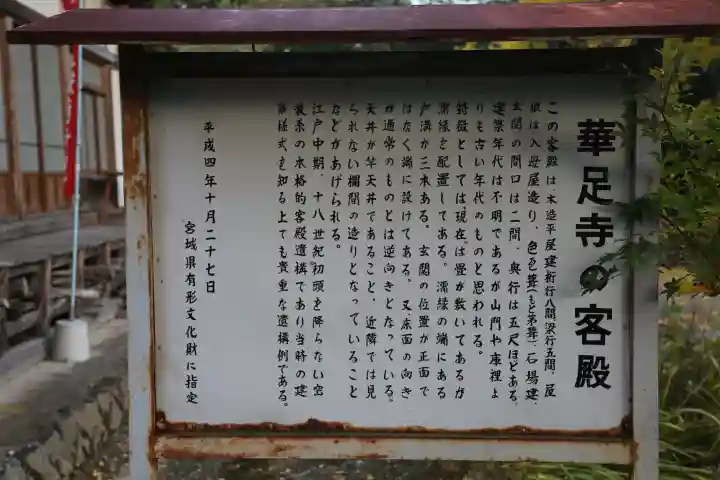 華足寺の客殿
この客殿は木造平屋建桁行八間、梁行五間、屋
根は入母屋造り、色瓦葺(もと茅葺)、石場建、
玄関の間口は二間、奥行は五尺ほどある。
建築年代は不明であるが山門や庫裡よ
りも古い年代のものと思われる。
特徴としては現在は畳が敷いてあるが
濡縁を配置してある。濡縁の端にある
戸溝が三本ある。玄関の位置が正面で
はなく端に設けてある。又、床面の向き
が通常のものとは逆向きとなっている。
天井が竿天井であること、近隣では見
られない欄間の造りとなっていること
などがあげられる。
江戸中期、十八世紀初頭を降らない宮
装系の本格的客殿遺構であり当時の建
築様式を知る上でも貴重な遺構例である。
平成四年十月二十七日
宮城県有形文化財に指定